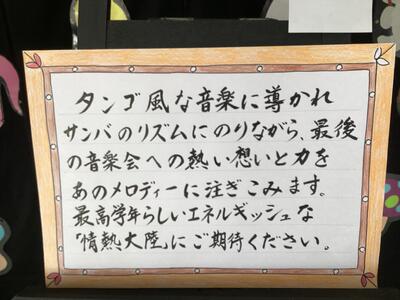 タンゴ風な音楽に導かれ
サンバのリズムにのりながら、最後
の音楽会への熱い想いと力を
あのメロディーに注ぎこみます。
最高学年らしいエネルギッシュな
「情熱大陸」にご期待ください。